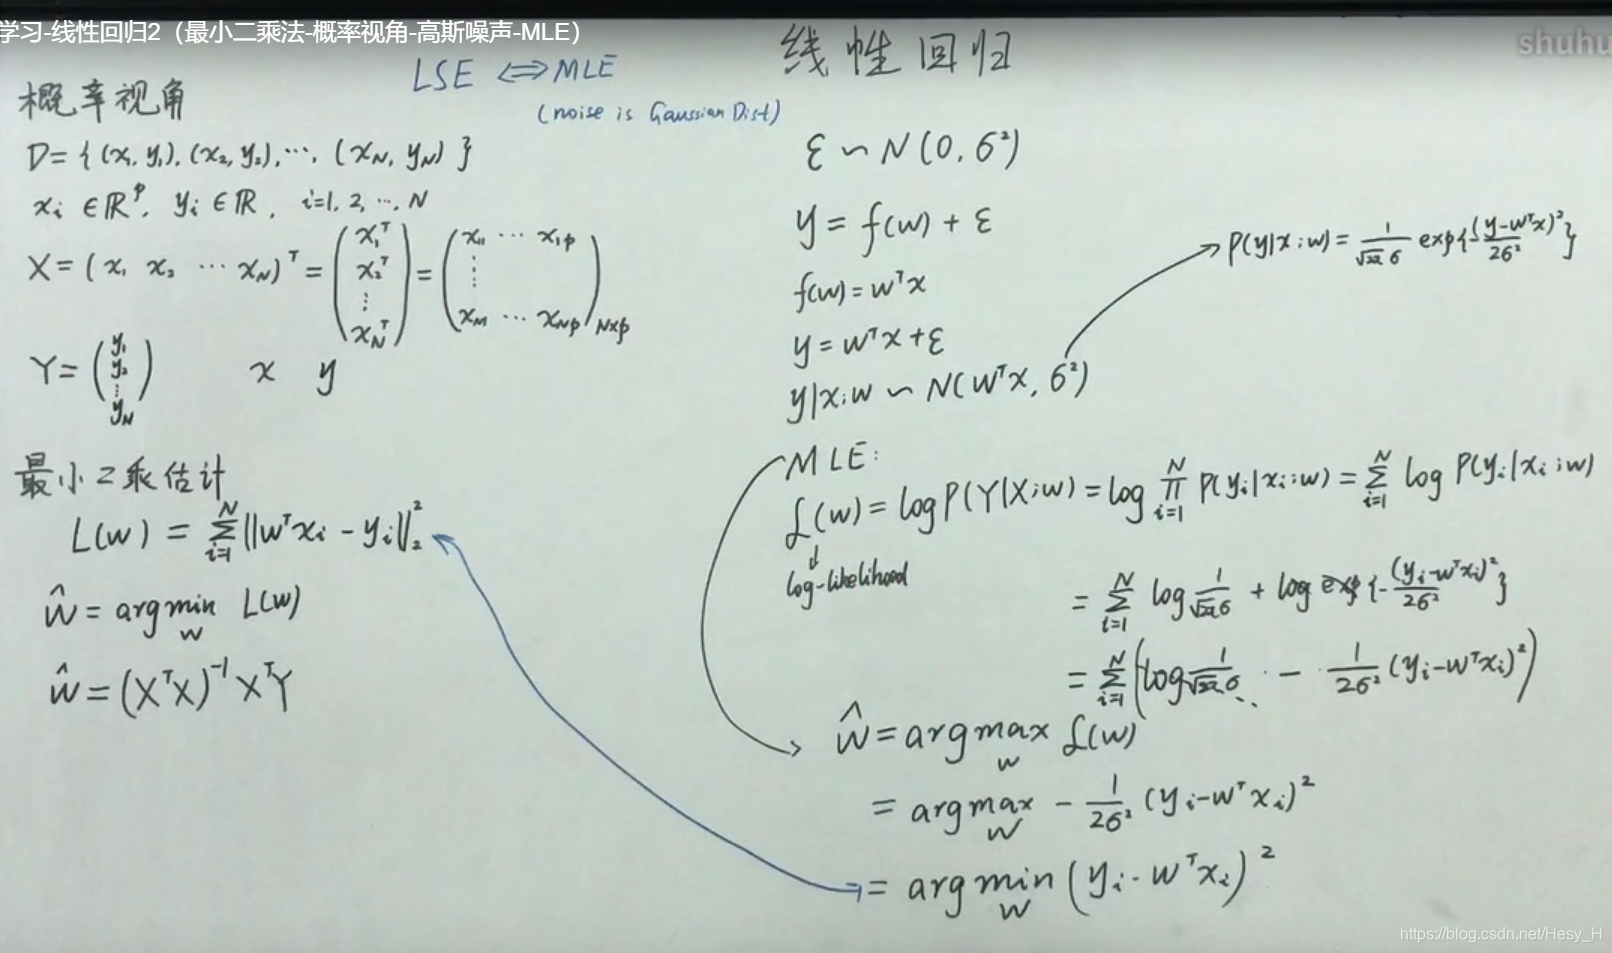 学习-线性回归2（最小二乘法-概率视角-高斯噪声-MLE）
shuhu
线性回归
LSE ⟺ MLE
(noise is Gaussian Dist)
概率视角
D = { (x₁, y₁), (x₂, y₂), ⋯, (x_N, y_N) }
x_i ∈ ℝ^p, y_i ∈ ℝ, i=1, 2, ⋯, N
X = (x₁ x₂ ⋯ x_N)^T = (x₁^T x₂^T ⋮ x_N^T) = (x₁₁ ⋯ x₁p ⋮ x_N1 ⋯ x_Np)_N×p
Y = (y₁ y₂ ⋮ y_N) x y
最小二乘估计
L(w) = ∑_{i=1}^N ||w^T x_i - y_i||₂²
ŵ = argmin_w L(w)
ŵ = (X^T X)^{-1} X^T Y
ε ∼ N(0, σ²)
y = f(w) + ε
f(w) = w^T x
y = w^T x + ε
y|x;w ∼ N(w^T x, σ²)
P(y|x;w) = 1/(√2π σ) exp{-(y-w^T x)²/2σ²}
MLE:
ℒ(w) = log P(Y|X;w) = log ∏_{i=1}^N P(y_i|x_i;w) = ∑_{i=1}^N log P(y_i|x_i;w)
log-likelihood
= ∑_{i=1}^N log 1/(√2π σ) + log exp{-(y_i-w^T x_i)²/2σ²}
= ∑_{i=1}^N (log 1/(√2π σ) - 1/2σ² (y_i-w^T x_i)²)
ŵ = argmax_w ℒ(w)
= argmax_w - 1/2σ² (y_i-w^T x_i)²
= argmin_w (y_i-w^T x_i)²
https://blog.csdn.net/Hesy_H